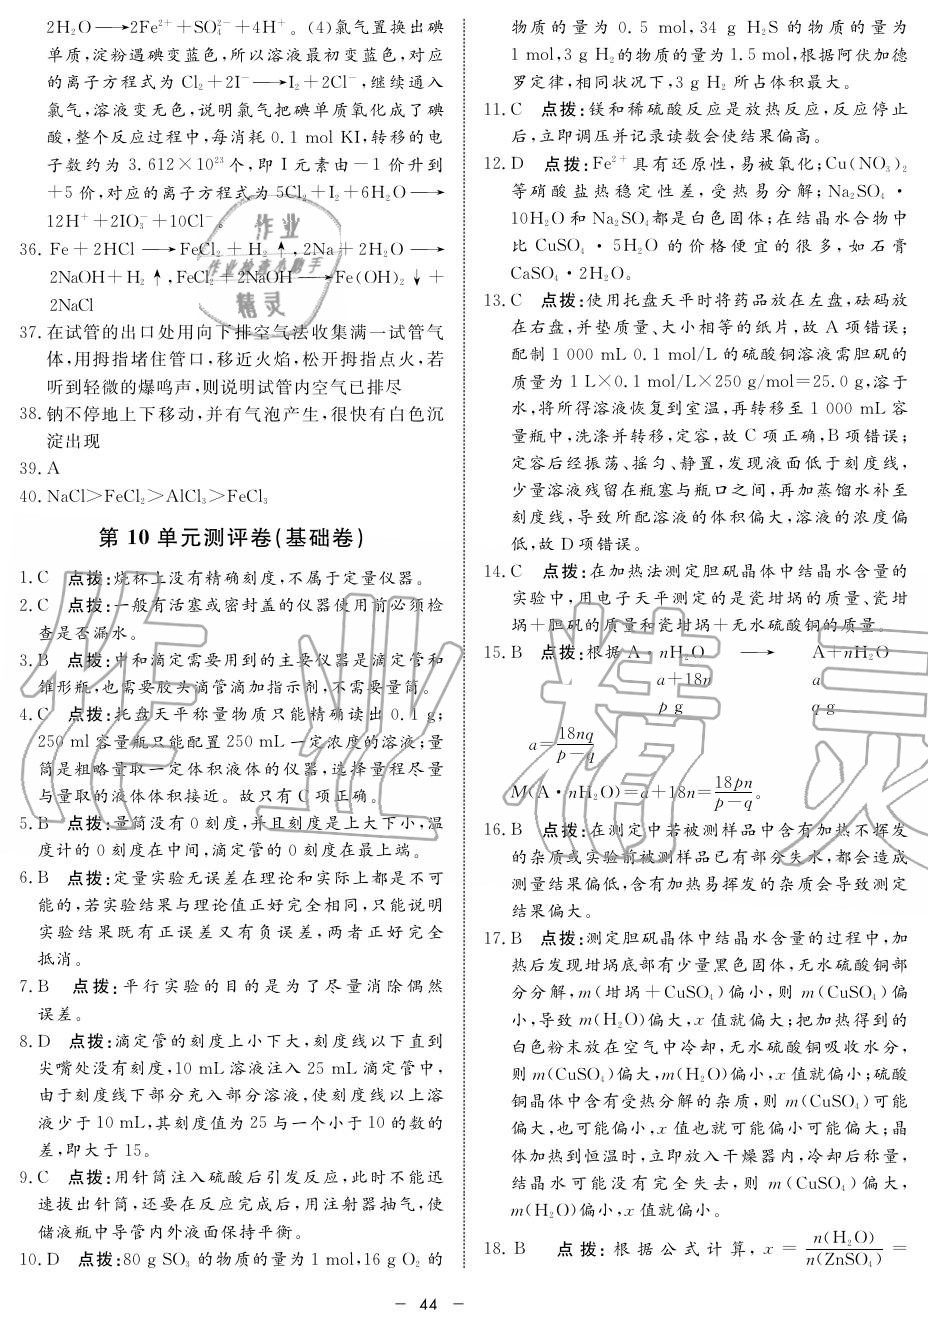 2H₂O⟶2Fe²⁺+SO₄²⁻+4H⁺。(4)氯气置换出碘
单质,淀粉遇碘变蓝色,所以溶液最初变蓝色,对应
的离子方程式为 Cl₂+2I⁻⟶I₂+2Cl⁻,继续通入
氯气,溶液变无色,说明氯气把碘单质氧化成了碘
酸,整个反应过程中,每消耗 0.1 mol KI,转移的电
子数约为 3.612×10²³个,即 I 元素由－1 价升到
+5 价,对应的离子方程式为 5Cl₂+I₂+6H₂O⟶
12H⁺+2IO₃⁻+10Cl⁻。
36. Fe+2HCl⟶FeCl₂+H₂↑,2Na+2H₂O⟶
2NaOH+H₂↑,FeCl₂+2NaOH⟶Fe(OH)₂↓+
2NaCl
37. 在试管的出口处用向下排空气法收集满一试管气
体,用拇指堵住管口,移近火焰,松开拇指点火,若
听到轻微的爆鸣声,则说明试管内空气已排尽
38. 钠不停地上下移动,并有气泡产生,很快有白色沉
淀出现
39. A
40. NaCl>FeCl₂>AlCl₃>FeCl₃
第 10 单元测评卷(基础卷)
1. C 点拨:烧杯上没有精确刻度,不属于定量仪器。
2. C 点拨:一般有活塞或密封盖的仪器使用前必须检
查是否漏水。
3. B 点拨:中和滴定需要用到的主要仪器是滴定管和
锥形瓶,也需要胶头滴管滴加指示剂,不需要量筒。
4. C 点拨:托盘天平称量物质只能精确读出 0.1 g;
250 ml 容量瓶只能配置 250 mL 一定浓度的溶液;量
筒是粗略量取一定体积液体的仪器,选择量程尽量
与量取的液体体积接近。故只有 C 项正确。
5. B 点拨:量筒没有 0 刻度,并且刻度是上大下小,温
度计的 0 刻度在中间,滴定管的 0 刻度在最上端。
6. B 点拨:定量实验无误差在理论和实际上都是不可
能的,若实验结果与理论值正好完全相同,只能说明
实验结果既有正误差又有负误差,两者正好完全
抵消。
7. B 点拨:平行实验的目的是为了尽量消除偶然
误差。
8. D 点拨:滴定管的刻度上小下大,刻度线以下直到
尖嘴处没有刻度,10 mL 溶液注入 25 mL 滴定管中,
由于刻度线下部分充入部分溶液,使刻度线以上溶
液少于 10 mL,其刻度值为 25 与一个小于 10 的数的
差,即大于 15。
9. C 点拨:用针筒注入硫酸后引发反应,此时不能迅
速拔出针筒,还要在反应完成后,用注射器抽气,使
储液瓶中导管内外液面保持平衡。
10. D 点拨:80 g SO₃ 的物质的量为 1 mol,16 g O₂ 的
物质的量为 0.5 mol,34 g H₂S 的物质的量为
1 mol,3 g H₂的物质的量为 1.5 mol,根据阿伏加德
罗定律,相同状况下,3 g H₂ 所占体积最大。
11. C 点拨:镁和稀硫酸反应是放热反应,反应停止
后,立即调压并记录读数会使结果偏高。
12. D 点拨:Fe²⁺具有还原性,易被氧化;Cu(NO₃)₂
等硝酸盐热稳定性差,受热易分解;Na₂SO₄·
10H₂O 和 Na₂SO₄都是白色固体;在结晶水合物中
比 CuSO₄·5H₂O 的价格便宜的很多,如石膏
CaSO₄·2H₂O。
13. C 点拨:使用托盘天平时将药品放在左盘,砝码放
在右盘,并垫质量、大小相等的纸片,故 A 项错误;
配制 1 000 mL 0.1 mol/L 的硫酸铜溶液需胆矾的
质量为 1 L×0.1 mol/L×250 g/mol=25.0 g,溶于
水,将所得溶液恢复到室温,再转移至 1 000 mL 容
量瓶中,洗涤并转移,定容,故 C 项正确,B 项错误;
定容后经振荡、摇匀、静置,发现液面低于刻度线,
少量溶液残留在瓶塞与瓶口之间,再加蒸馏水补至
刻度线,导致所配溶液的体积偏大,溶液的浓度偏
低,故 D 项错误。
14. C 点拨:在加热法测定胆矾晶体中结晶水含量的
实验中,用电子天平测定的是瓷坩埚的质量、瓷坩
埚+胆矾的质量和瓷坩埚+无水硫酸铜的质量。
15. B 点拨:根据 A·nH₂O ⟶ A+nH₂O
a+18n a
p g q g
a=18nq/(p−q)
M(A·nH₂O)=a+18n=18pn/(p−q)。
16. B 点拨:在测定中若被测样品中含有加热不挥发
的杂质或实验前被测样品已有部分失水,都会造成
测量结果偏低,含有加热易挥发的杂质会导致测定
结果偏大。
17. B 点拨:测定胆矾晶体中结晶水含量的过程中,加
热后发现坩埚底部有少量黑色固体,无水硫酸铜部
分分解,m(坩埚+CuSO₄)偏小,则 m(CuSO₄)偏
小,导致 m(H₂O)偏大,x 值就偏大;把加热得到的
白色粉末放在空气中冷却,无水硫酸铜吸收水分,
则 m(CuSO₄)偏大,m(H₂O)偏小,x 值就偏小;硫酸
铜晶体中含有受热分解的杂质,则 m(CuSO₄)可能
偏大,也可能偏小,x 值也就可能偏小可能偏大;晶
体加热到恒温时,立即放入干燥器内,冷却后称量,
结晶水可能没有完全失去,则 m(CuSO₄)偏大,
m(H₂O)偏小,x 值就偏小。
18. B 点拨:根据公式计算,x=n(H₂O)/n(ZnSO₄)=
− 44 −
作业
作业检查小助手
精灵
作业精灵